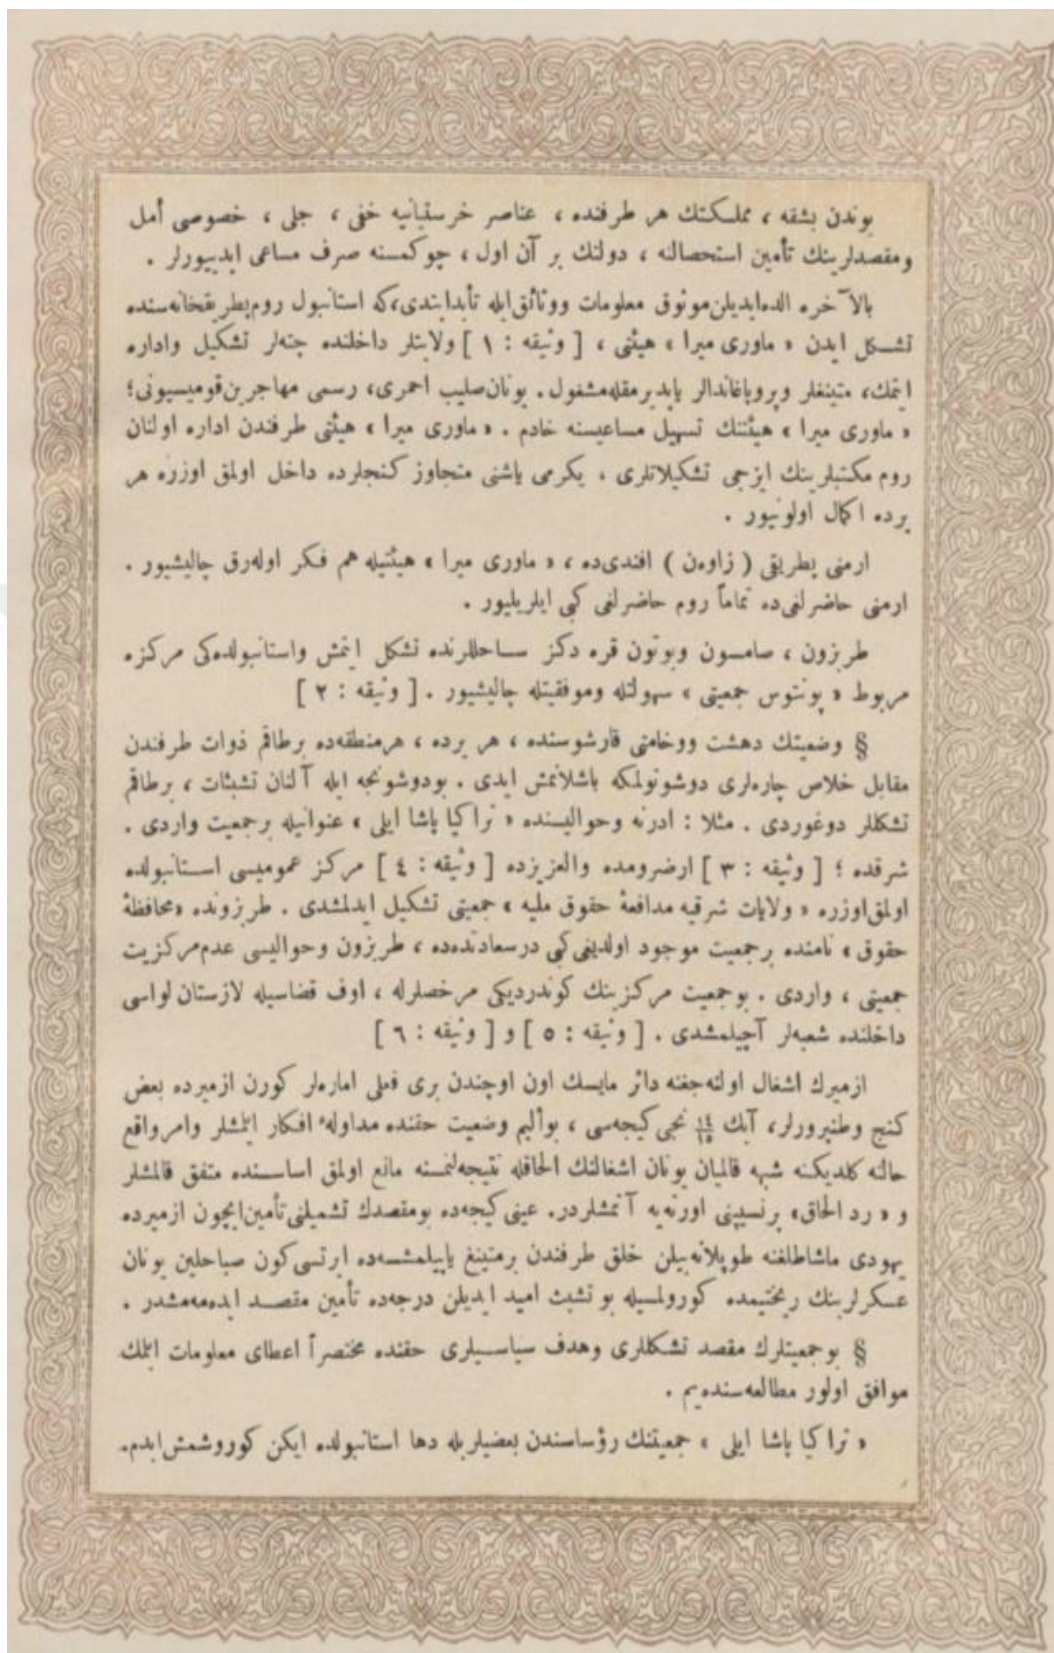 بوندن بشقه ، مملكتك هر طرفنده ، عناصر خرستيانيه خفى ، جلى ، خصوصى أمل
ومقصدلرينك تأمين استحصالنه ، دولتك بر آن اول ، چوكمسنه صرف مساعى ايدييورلر .
بالآخره الده‌ايديلن موثوق معلومات ووثائق ايله تأيد ايتدى،كه استانبول روم بطريقخانه‌سنده
تشكل ايدن « ماورى ميرا » هيئتى ، [ وثيقه : ١ ] ولايتلر داخلنده چته‌لر تشكيل واداره
ايتمك، متينغلر وپروپاغاندالر ياپديرمقله مشغول . يونان صليب احمرى، رسمى مهاجرين قوميسيونى؛
« ماورى ميرا » هيئتنك تسهيل مساعيسنه خادم . « ماورى ميرا » هيئتى طرفندن اداره اولنان
روم مكتبلرينك ايزجى تشكيلاتلرى ، يكرمى ياشنى متجاوز كنجلرده داخل اولمق اوزره هر
يرده اكمال اولونيور .
ارمنى بطريقى ( زاوهن ) افندى‌ده ، « ماورى ميرا » هيئتيله هم فكر اوله‌رق چاليشيور .
ارمنى حاضرلغى‌ده تماماً روم حاضرلغى كبى ايلريليور .
طربزون ، صامسون وبوتون قره دكز ساحللرنده تشكل ايتمش واستانبولده‌كى مركزه
مربوط « پونتوس جمعيتى » سهولتله وموفقيتله چاليشيور . [ وثيقه : ٢ ]
§ وضعيتك دهشت ووخامتى قارشوسنده ، هر يرده ، هرمنطقه‌ده برطاقم ذوات طرفندن
مقابل خلاص چاره‌لرى دوشونولمكه باشلانمش ايدى . بودوشونجه ايله آلنان تشبثات ، برطاقم
تشكللر دوغوردى . مثلا : ادرنه وحواليسنده « تراكيا پاشا ايلى » عنوانيله برجمعيت واردى .
شرقده ؛ [ وثيقه : ٣ ] ارضرومده والعزيزده [ وثيقه : ٤ ] مركز عموميسى استانبولده
اولمق اوزره « ولايات شرقيه مدافعهٔ حقوق مليه » جمعيتى تشكيل ايدلمشدى . طربزونده «محافظهٔ
حقوق » نامنده برجمعيت موجود اولديغى كبى درسعادتده‌ده ، طربزون وحواليسى عدم مركزيت
جمعيتى ، واردى . بوجمعيت مركزينك كوندرديكى مرخصلرله ، اوف قضاسيله لازستان لواسى
داخلنده شعبه‌لر آچيلمشدى . [ وثيقه : ٥ ] و [ وثيقه : ٦ ]
ازميرك اشغال اولنه‌جغنه دائر مايسك اون اوچندن برى فعلى اماره‌لر كورن ازميرده بعض
كنج وطنپرورلر، آيك ١٤/١٥ نجى كيجه‌سى ، بوأليم وضعيت حقنده مداولهٔ افكار ايتمشلر وامر واقع
حالنه كلديكنه شبهه قالميان يونان اشغالنك الحاقله نتيجه‌لنمسنه مانع اولمق اساسنده متفق قالمشلر
و « رد الحاق» پرنسيپنى اورته‌يه آتمشلردر. عينى كيجه‌ده بومقصدك تشميلنى تأمين ايچون ازميرده
يهودى ماشاطلغنه طوپلانه‌بيلن خلق طرفندن برمتينغ ياپيلمشسه‌ده ايرتسى كون صباحلين يونان
عسكرلرينك ريختيمده كورولمسيله بو تشبث اميد ايديلن درجه‌ده تأمين مقصد ايده‌مه‌مشدر .
§ بوجمعيتلرك مقصد تشكللرى وهدف سياسيلرى حقنده مختصراً اعطاى معلومات ايتمك
موافق اولور مطالعه‌سنده‌يم .
« تراكيا پاشا ايلى » جمعيتنك رؤساسندن بعضيلريله دها استانبولده ايكن كوروشمش ايدم.